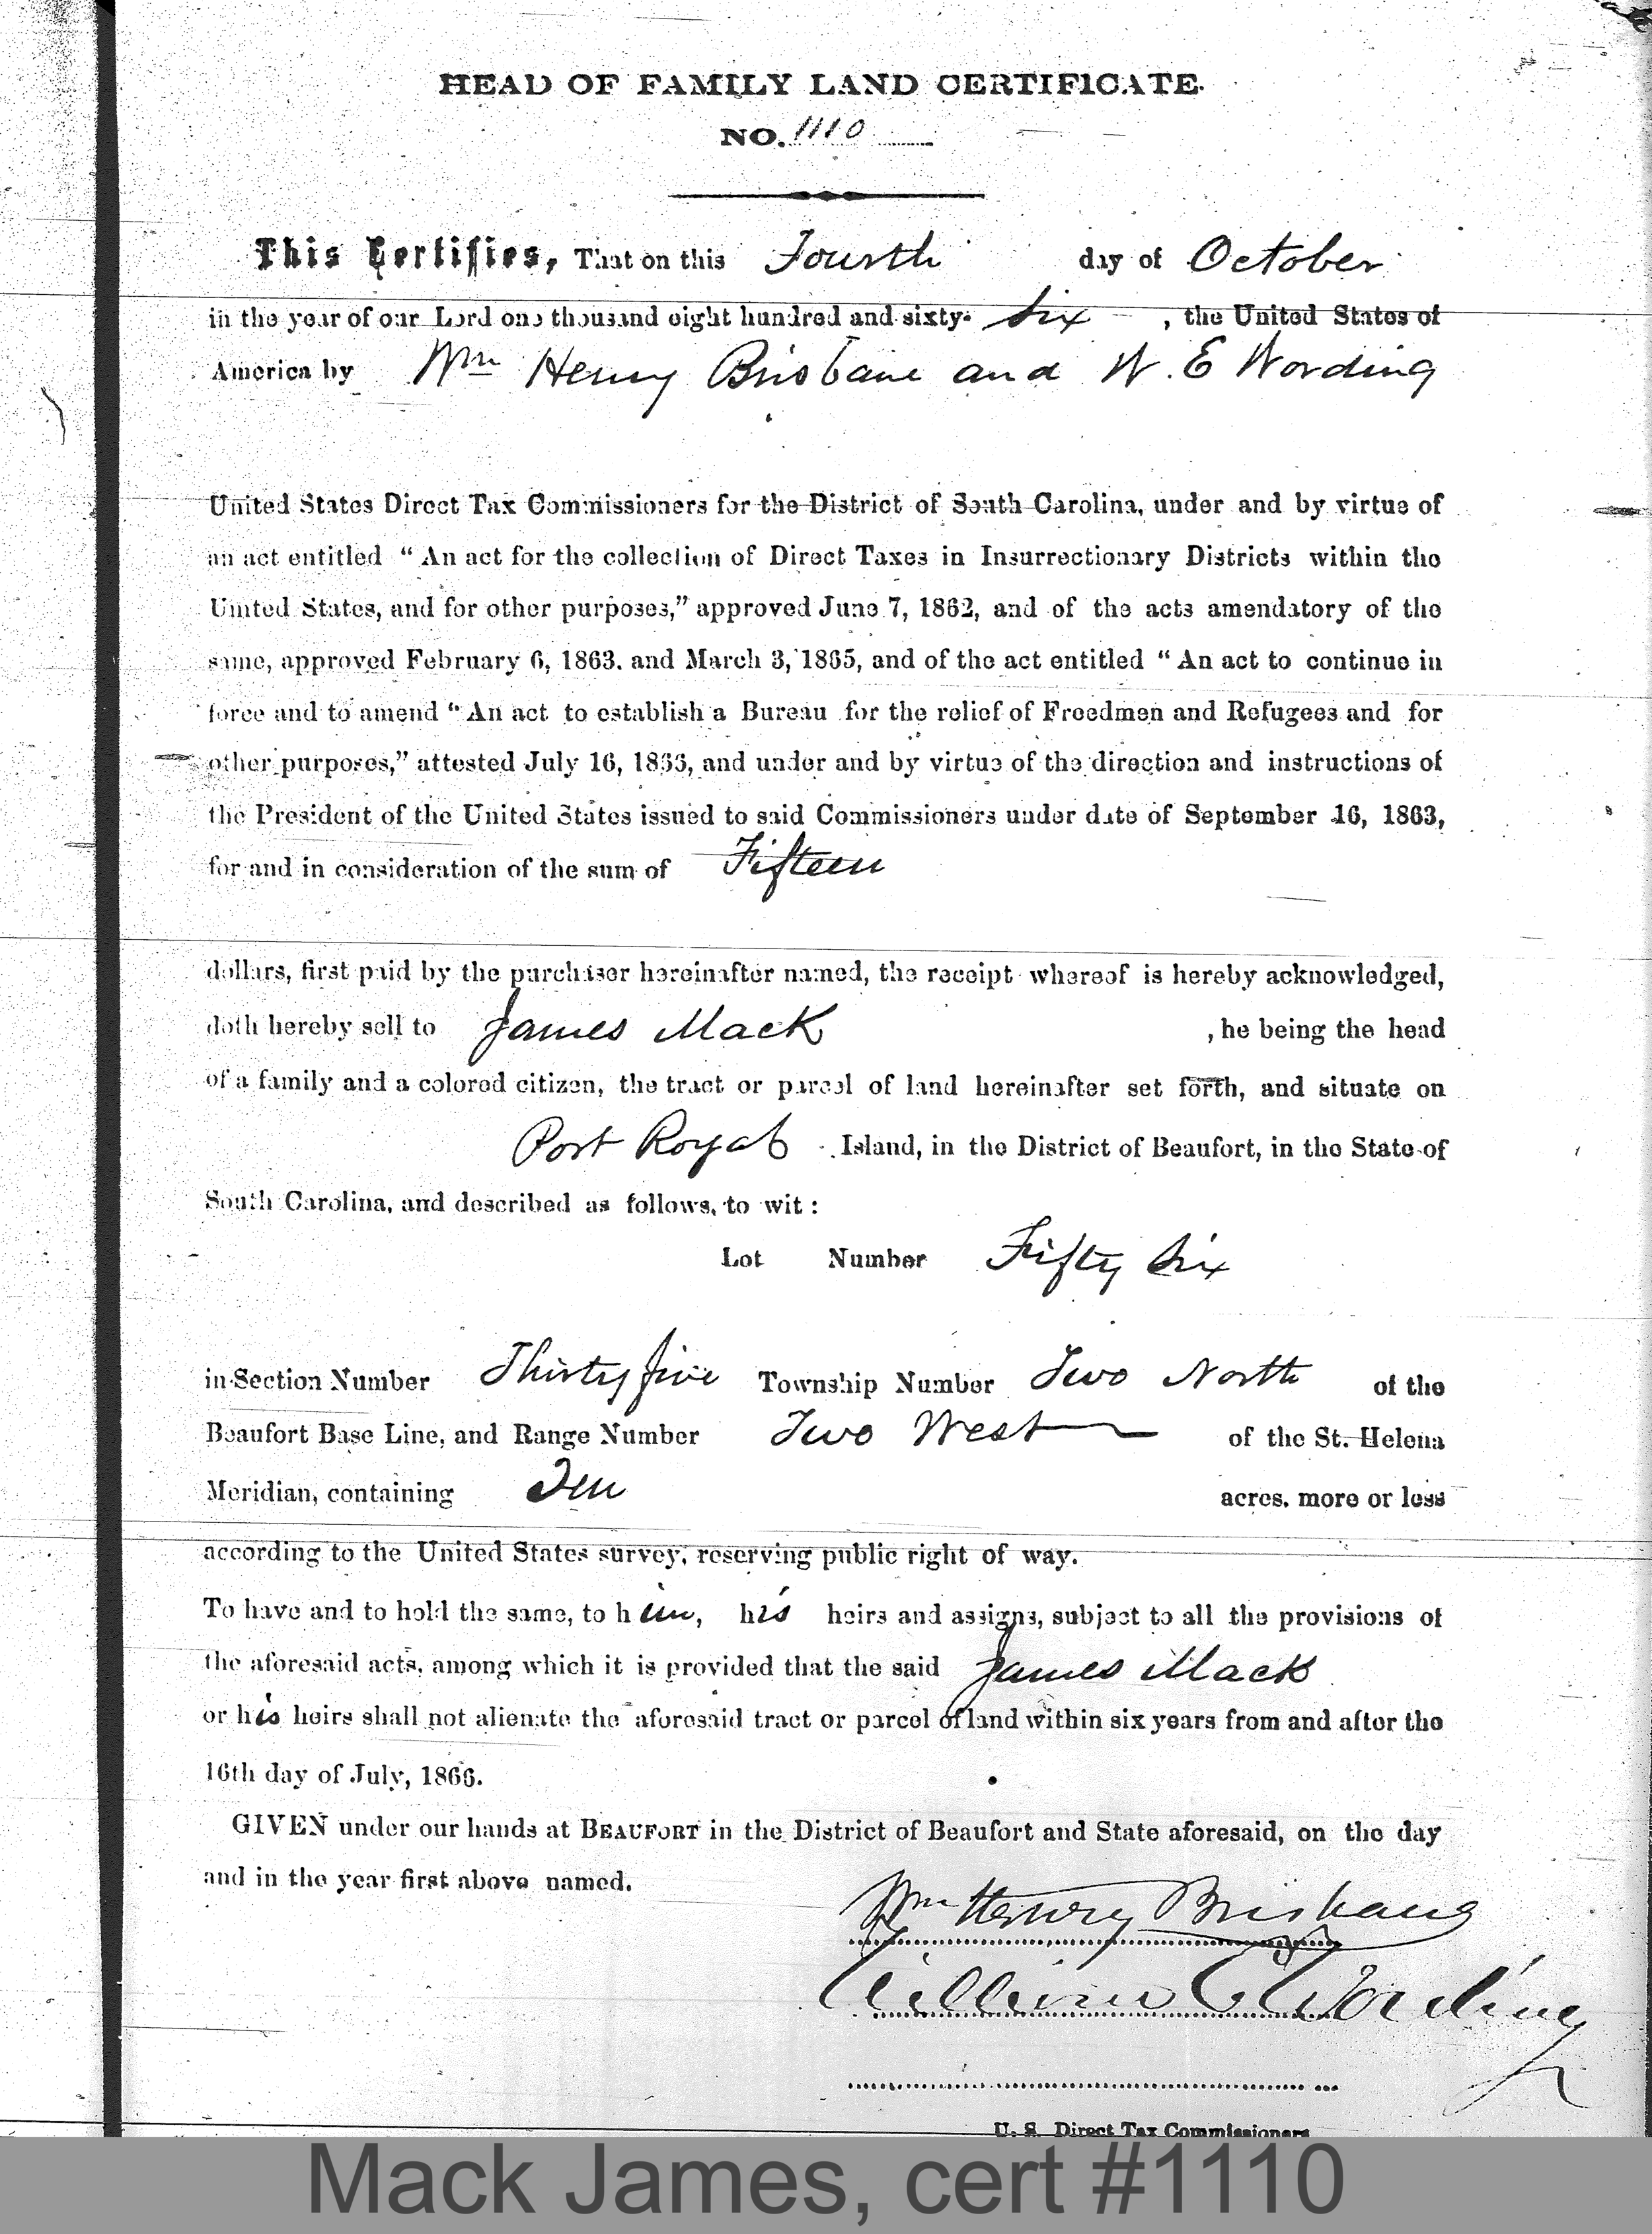 HEAD OF FAMILY LAND CERTIFICATE.
NO. 1110
This Certifies, That on this Fourth day of October
in the year of our Lord one thousand eight hundred and sixty- Six , the United States of
America by Wm Henry Brisbane and W. E Wording
United States Direct Tax Commissioners for the District of South Carolina, under and by virtue of
an act entitled “ An act for the collection of Direct Taxes in Insurrectionary Districts within the
United States, and for other purposes,” approved June 7, 1862, and of the acts amendatory of the
same, approved February 6, 1863. and March 3, 1865, and of the act entitled “ An act to continue in
force and to amend “ An act to establish a Bureau for the relief of Freedmen and Refugees and for
other purposes,” attested July 16, 1866, and under and by virtue of the direction and instructions of
the President of the United States issued to said Commissioners under date of September 16, 1863,
for and in consideration of the sum of Fifteen
dollars, first paid by the purchaser hereinafter named, the receipt whereof is hereby acknowledged,
doth hereby sell to James Mack , he being the head
of a family and a colored citizen, the tract or parcel of land hereinafter set forth, and situate on
Port Royal Island, in the District of Beaufort, in the State of
South Carolina, and described as follows, to wit :
Lot Number Fifty Six
in Section Number Thirty five Township Number Two North of the
Beaufort Base Line, and Range Number Two West of the St. Helena
Meridian, containing Ten acres. more or less
according to the United States survey, reserving public right of way.
To have and to hold the same, to him, his heirs and assigns, subject to all the provisions of
the aforesaid acts, among which it is provided that the said James Mack
or his heirs shall not alienate the aforesaid tract or parcel of land within six years from and after the
16th day of July, 1866.
GIVEN under our hands at BEAUFORT in the District of Beaufort and State aforesaid, on the day
and in the year first above named.
Wm Henry Brisbane
William E Wording
U. S. Direct Tax Commissioners
Mack James, cert #1110